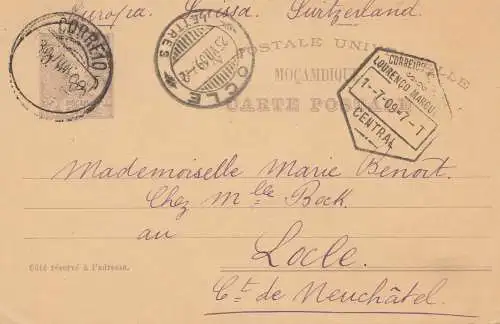 Europa. Suissa. Switzerland.
CORREIO
LOCLE
LETTRES
POSTALE UNIVERSELLE
MOÇAMBIQUE
CARTE POSTALE
CORREIO
LOURENÇO MARQUES
1-7-09-7-T
CENTRAL
Mademoiselle Marie Benoît.
Chez Mlle Bock.
au
Locle.
Côté réservé à l'adresse.
Ct. de Neuchâtel.